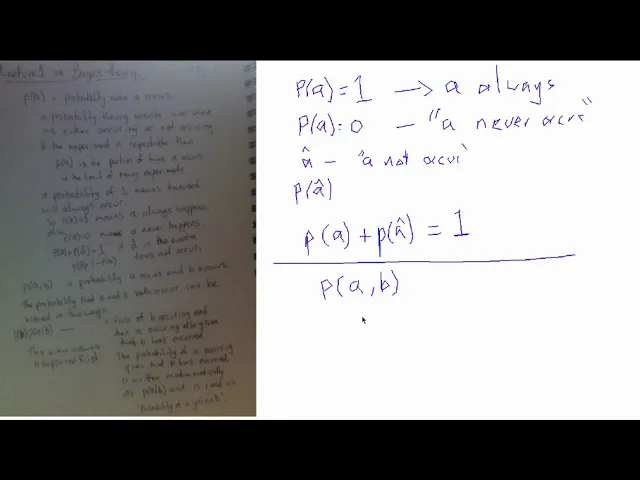 Lecture 1 on Bayes theory
p(a) = probability even a occurs.
a probability theory events are view
as either occuring or not occuring
if the experiment is repeatable then
p(a) is the portion of time a occurs
in the limit of many experiments
a probability of 1 means
will always occur.
So p(a)=1 means a always happens
also p(a)=0 means a never happens
p(a)+p(â)=1 if â is the event
does not occur.
p(a,b) = probability a occurs and b occurs.
The probability that a and b both occur can be
viewed a two ways.
first of b occuring and
then a occuring also given
that b has occured
The probability of a occuring
given that b has occured
is written mathematically
as p(a|b) and is read as
"probability of a given b".
This view assumes
b happened first
P(a)=1 → a always
P(a)=0 – "a never occurs"
â – "a not occur"
P(â)
p(a)+p(â)=1
P(a,b)